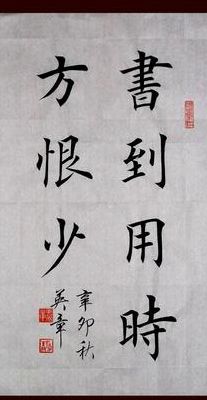 書到用時
方恨少
辛卯秋
英章